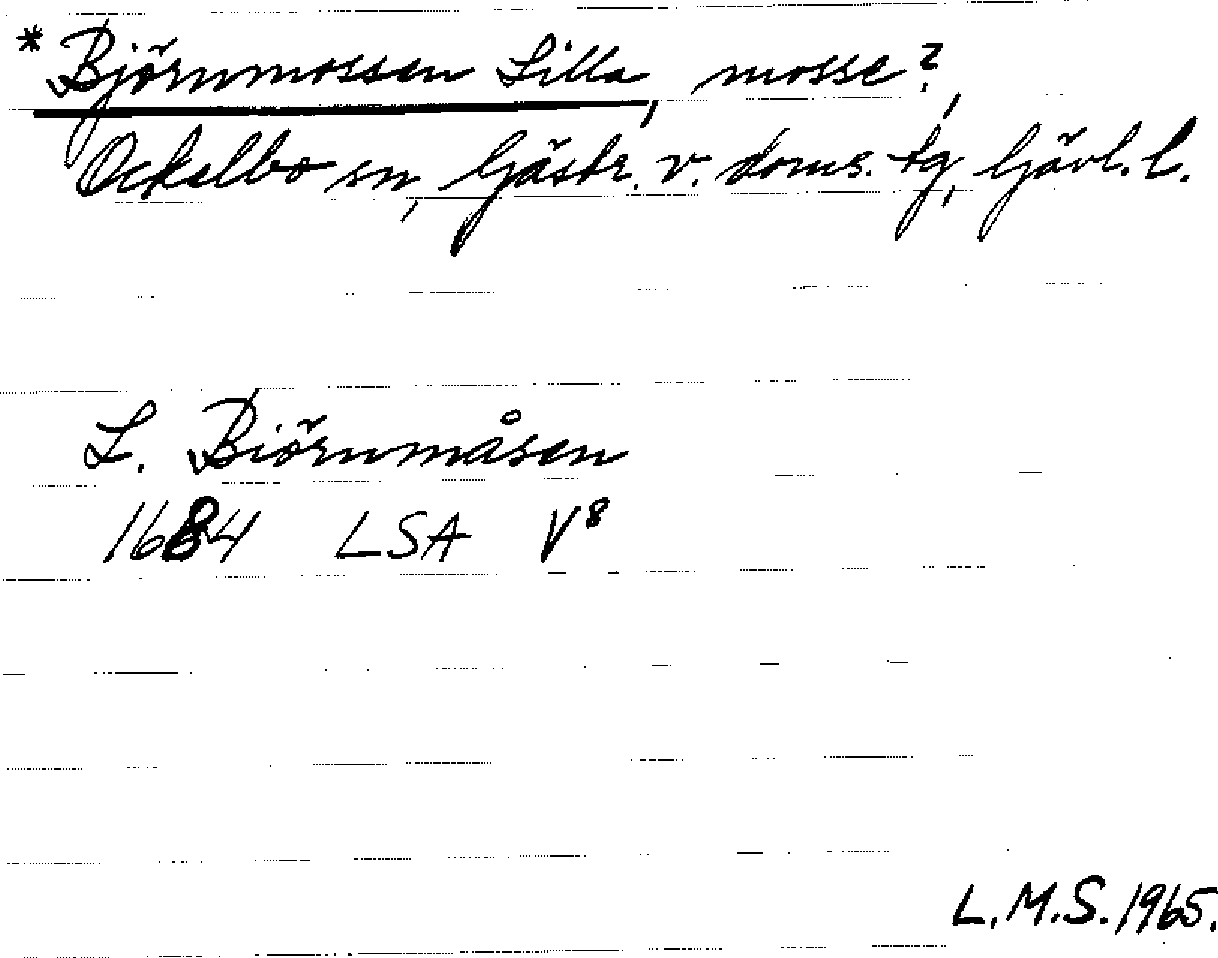 *Björnmossen Lilla, mosse?,
Ockelbo sn, Gästr. v. doms. tg, Gävl. l.
L. Biörnmåsen
1684 LSA V8
L.M.S. 1965.